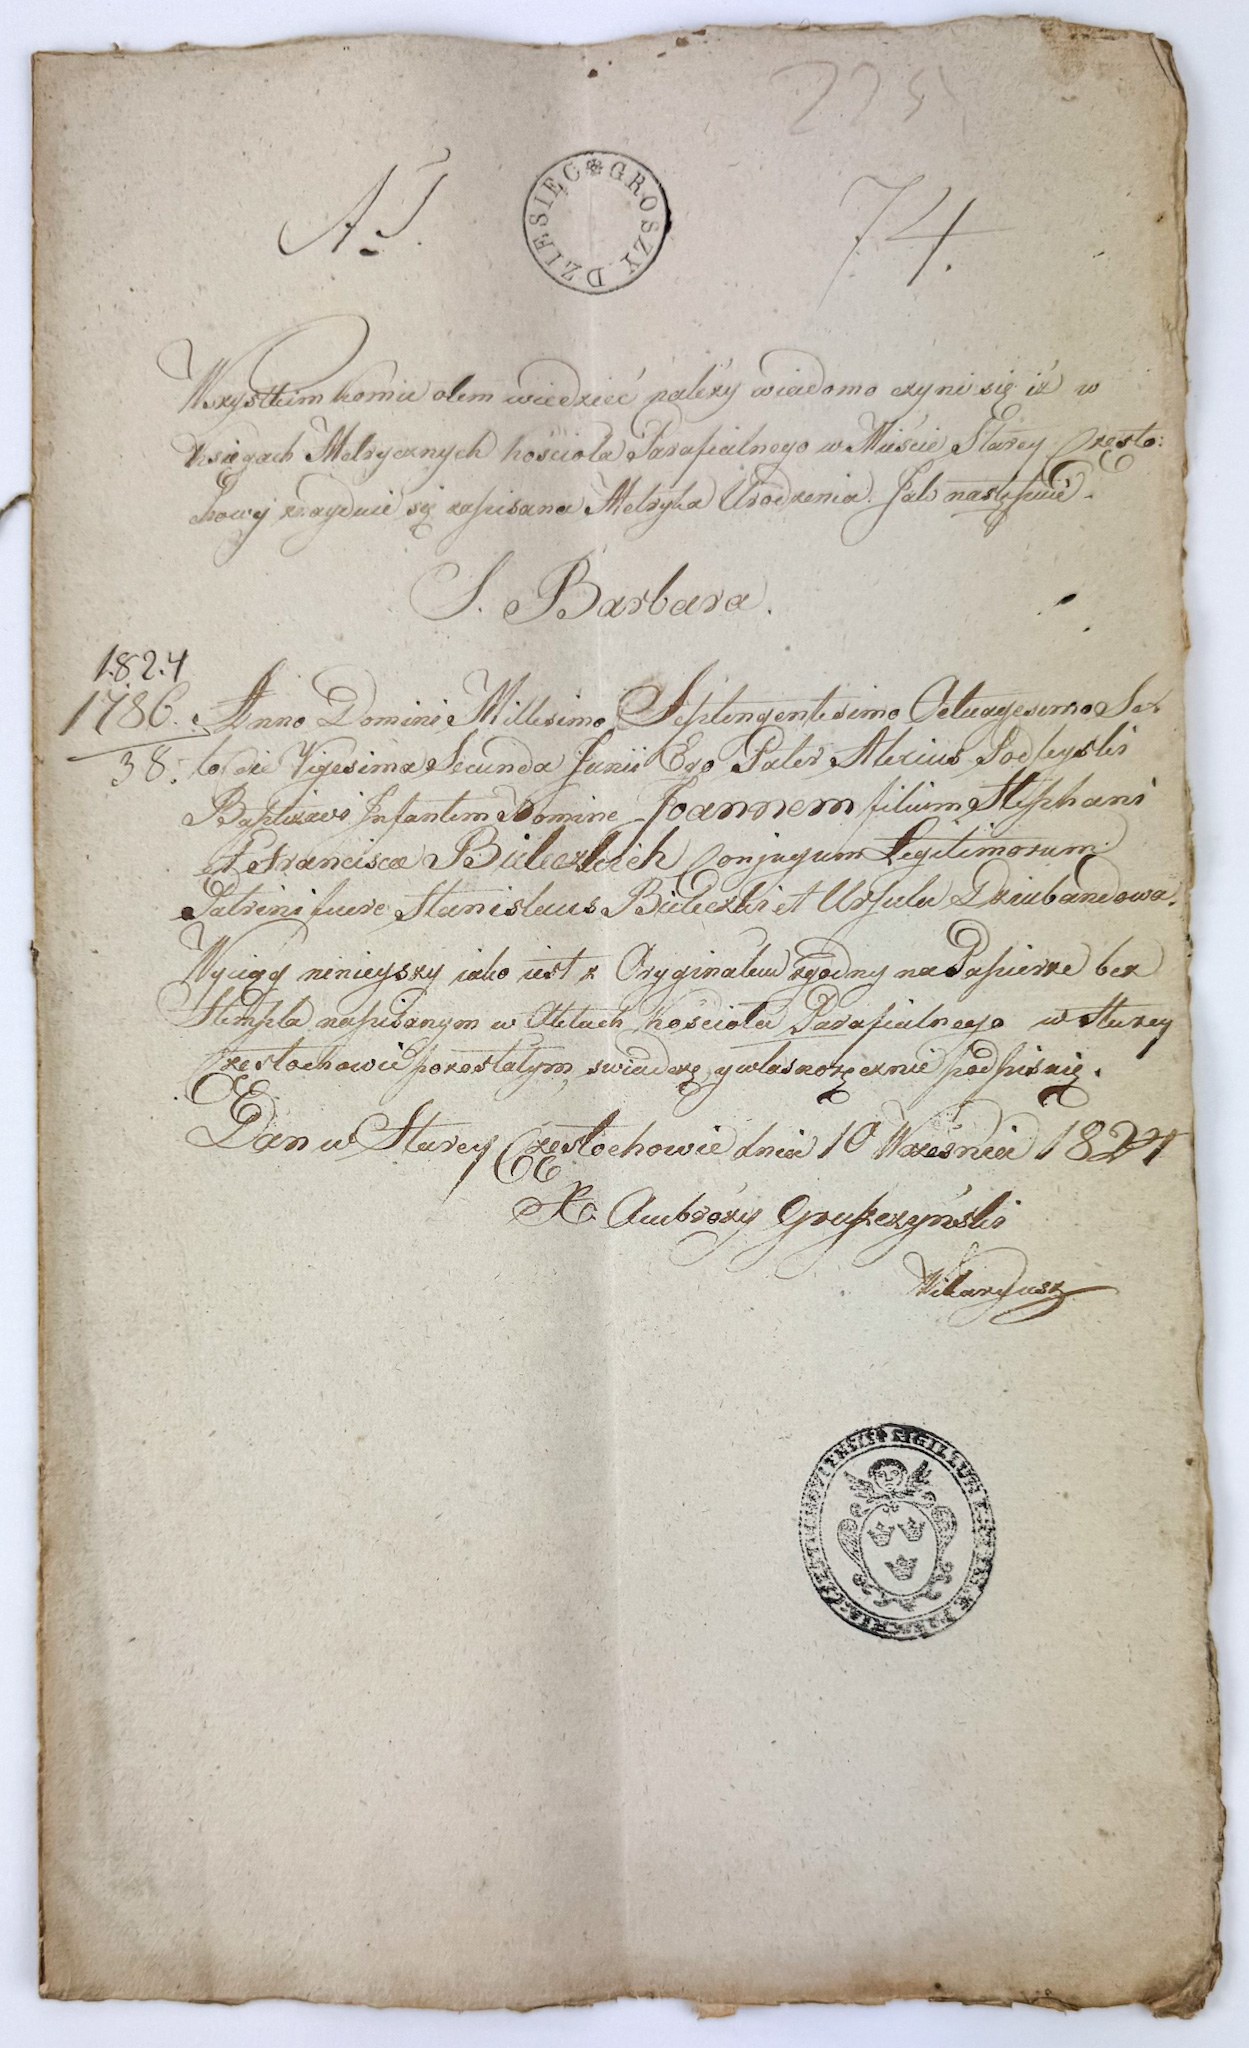 225
A J.
DZIESIĘĆ GROSZY
74.
Wszystkim komu o tem wiedzieć należy wiadomo czyni się iż w
Księgach Metrycznych Kościoła Parafialnego w Mieście Starey Często:
chowy znayduie się zapisana Metryka Urodzenia. Jak następuie.
S. Barbara.
1.8.2.4
1786.
38.
Anno Domini Millesimo Septingentesimo Octuagesimo Sex
to die Vigesima Secunda Junii Ego Pater Alexius
Baptizavi Infantem Nomine Joannem filium Stephani
et Francisca Bieleckich Conjugum Legitimorum
Patrini fuere Stanislaus Bielecki et Ursula Dziubandowa.
Wyciąg ninieyszy iako iest z Oryginałem zgodny na Papierze bez
Stempla napisanym w Aktach Kościoła Parafialnego w Starey
Częstochowie pozostałym, świadczę y własnoręcznie podpisuię.
Dan w Starey Częstochowie dnia 10 Września 1824
X. Ambroży Gruszczyński
Wikaryusz
SIGILLUM